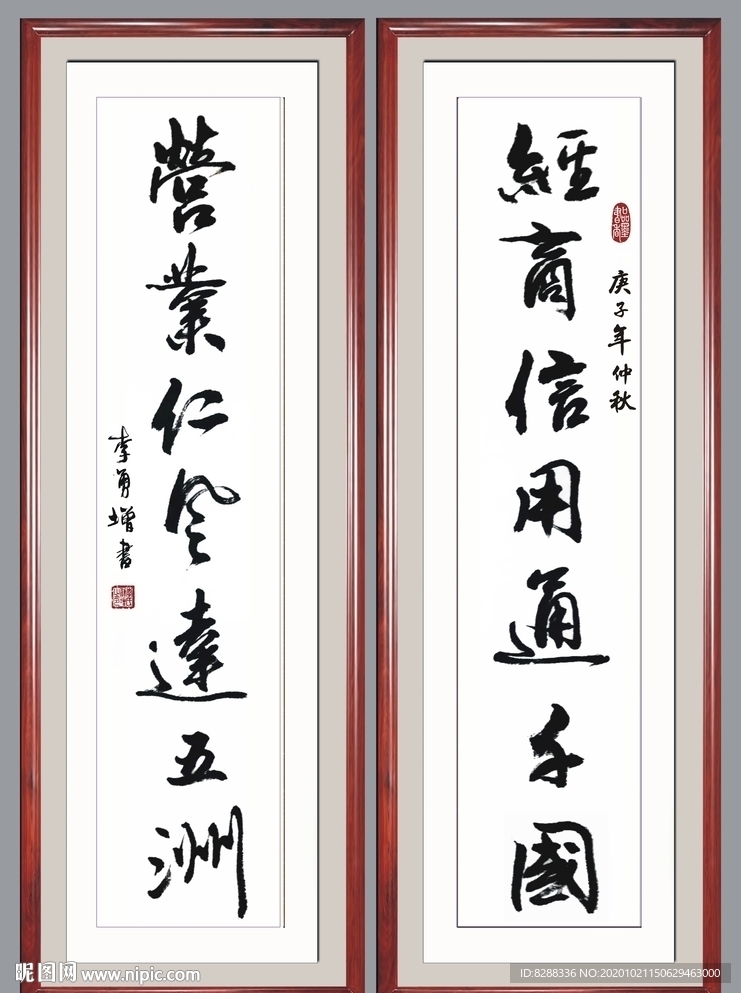 經商信用通千國
庚子年仲秋
營業仁風達五洲
李勇增書
昵图网 www.nipic.com
ID:8288336 NO:20201021150629463000